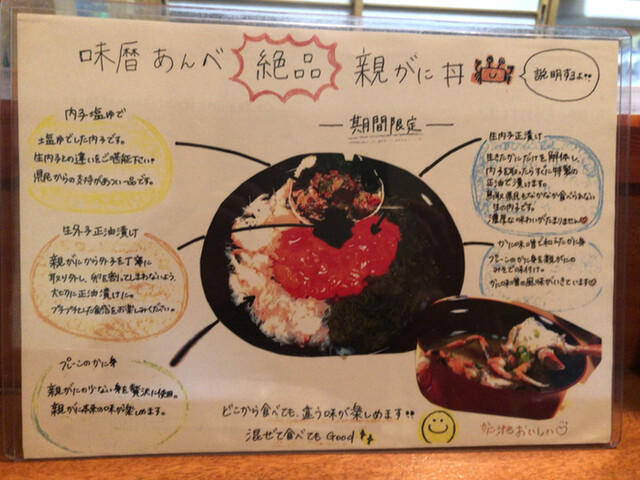 味暦あんべ 絶品 親がに丼
説明するよ!!
期間限定
内子塩ゆで
塩ゆでした内子です。
生内子との違いをご堪能下さい。
県民からの支持があつい一品です。
生外子正油漬け
親がにから外子を丁寧に
取り外し、卵を割ってしまわないよう、
大切に正油漬けに。
プチプチとした食感をお楽しみください。
プレーンのかに身
親がにの少ない身を贅沢に使用。
親がに本来の味が楽しめます。
生内子正漬け
生きたかにだけを解体し、
内子を取ったらすぐに特製の
正油で漬けます。
鳥取県民もなかなか食べられない
生の内子です。
濃厚な味わいがたまりません
かに味噌で和えたかに身
プレーンのかに身を親がにの
みそで味付け。
かに味噌の風味がいきています
どこから食べても、違う味が楽しめます!!
混ぜて食べてもGood
かに汁もおいしい